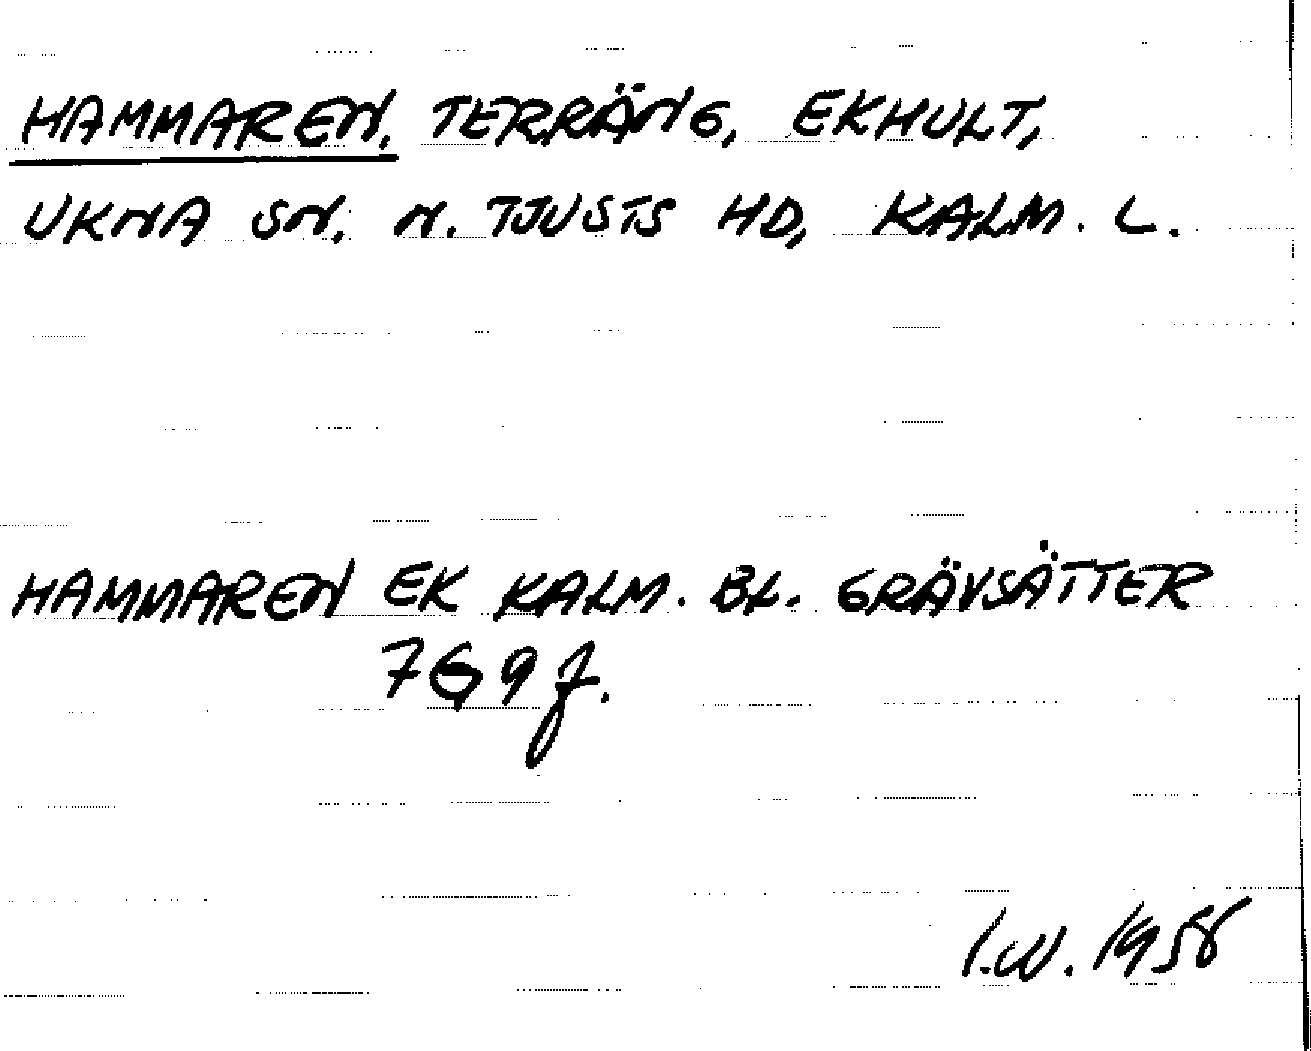 HAMMAREN, TERRÄNG, EKHULT,
UKNA SN, N. TJUSTS HD, KALM. L.
HAMMAREN EK KALM. BL. GRÄVSÄTTER
7G9f.
I.W. 1958